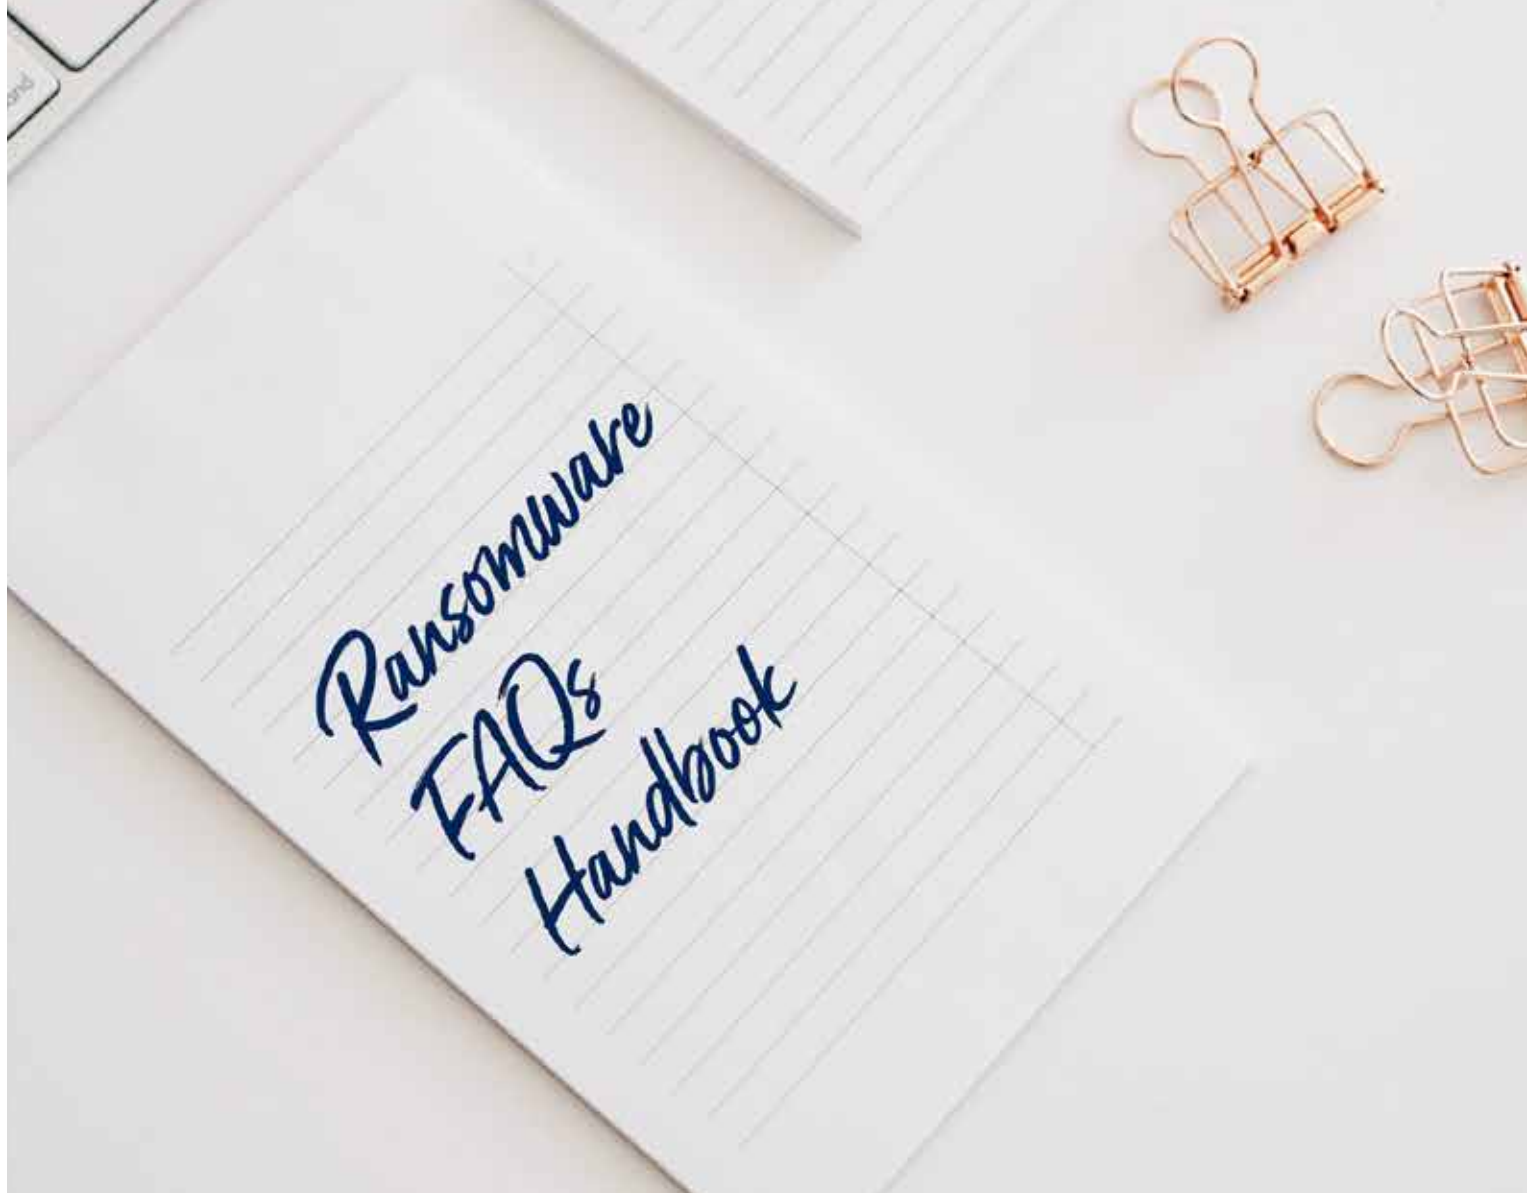 and
Ransomware
FAQs
Handbook